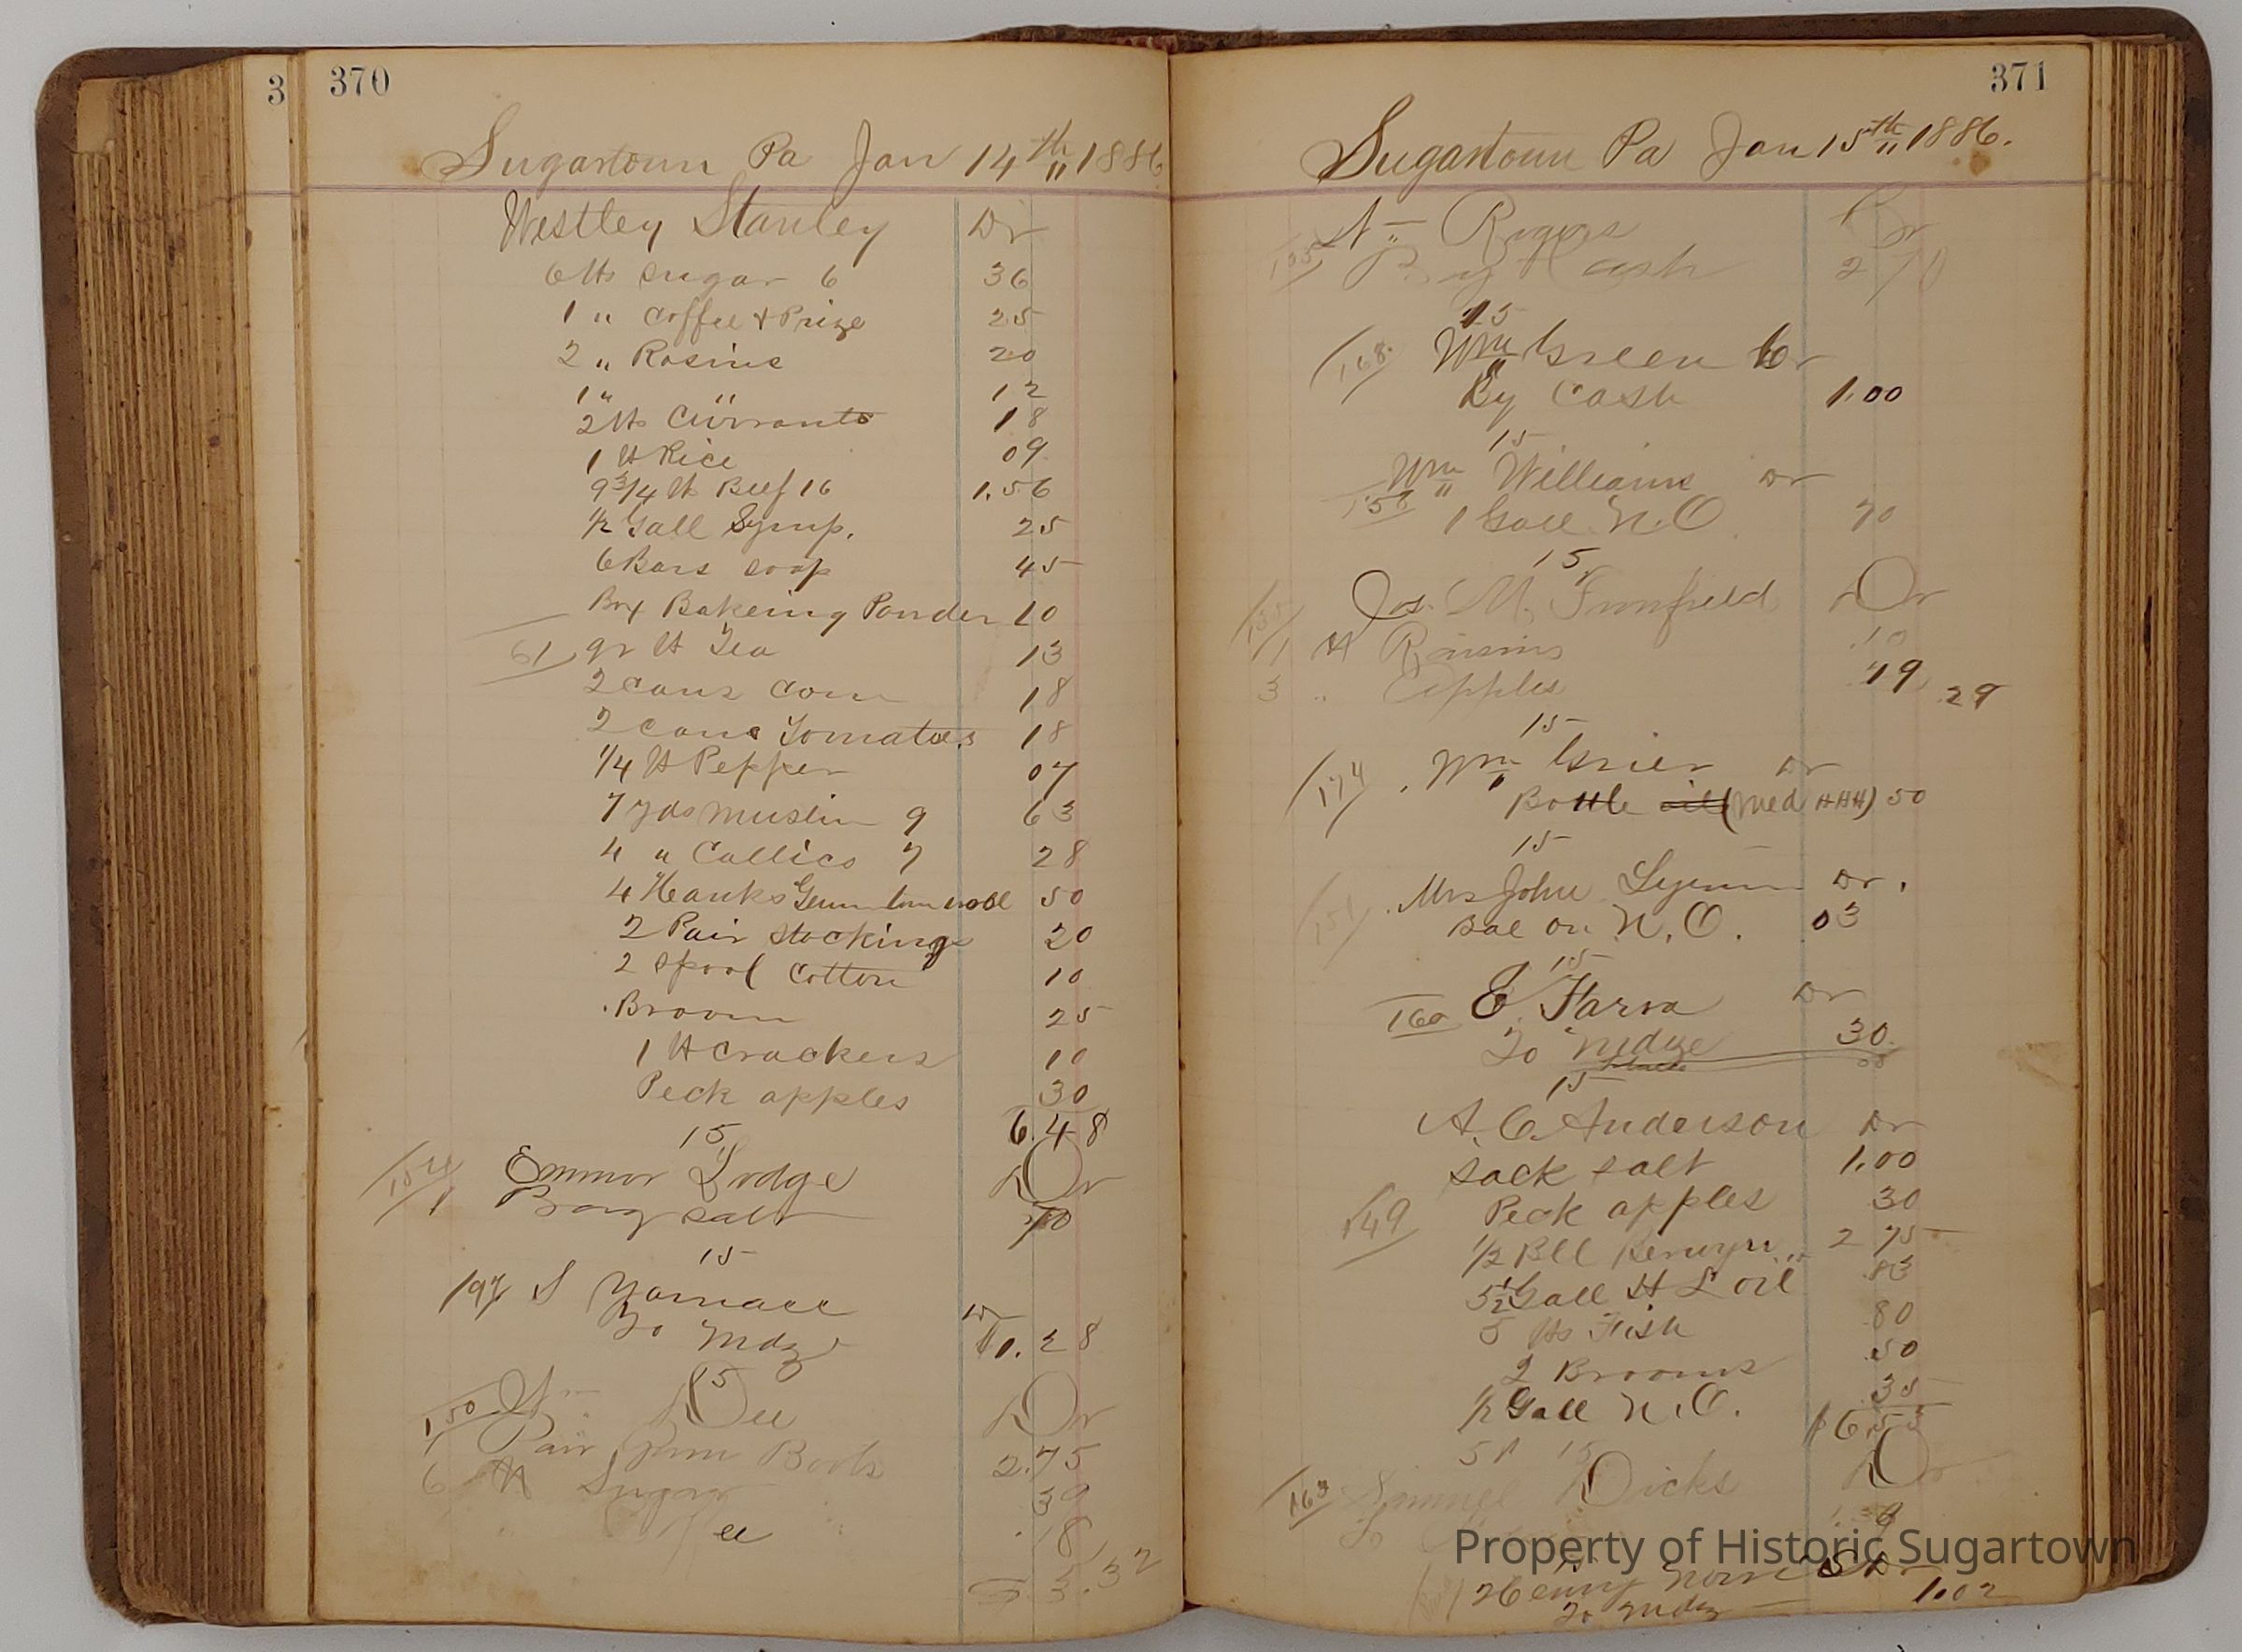 3 370
Sugartown Pa Jan 14th 1886
Westley Stanley Dr
6 lb sugar 6 36
1 " Coffee & Prize 25
2 " Rosins 20
1 " " 12
2 lb Currants 18
1 lb Rice 09
9 3/4 lb Beef 16 1.56
1/2 Gall Syrup. 25
6 Bars soap 45
Box Bakeing Powder 10
61 qr lb Tea 13
2 cans corn 18
2 cans Tomatoes 18
1/4 lb Pepper 07
7 yds muslin 9 63
4 " Callico 7 28
4 Hanks wool 50
2 Pair stockings 20
2 spool cotton 10
Broom 25
1 lb Crackers 10
Peck apples 30
6.48
15
154 Emmor Lodge Dr
1 Bag salt 10
15
197 S Yarnall Dr
To Mdz 11.28
15
150 Dr
1 Pair Gum Boots 2.75
6 lb Sugar 39
18
3.32
371
Sugartown Pa Jan 15th 1886.
Rogers Cr
By Cash 2 70
15
168 Wm Green Cr
By Cash 1.00
15
Wm Williams Dr
156 1 Gall N.O 70
15
Jos. M. Dr
1 lb Raisins .10
3 " Apples 19 29
15
174 Wm Grier Dr
Bottle oil (Med HHH) 50
15
151 Mrs John Dr.
Bal on N.O. .03
15
160 E. Farra Dr
To mdze 30
15
A. C. Anderson Dr
sack salt 1.00
149 Peck apples 30
1/2 Bll 2 75
5 1/2 Gall H L oil .83
5 lbs Fish 80
2 Brooms .50
1/2 Gall N.O. 35
$6.53
51 15
163 Samuel Dicks Dr
To
Property of Historic Sugartown
Henry Dr
To mdz 1.02